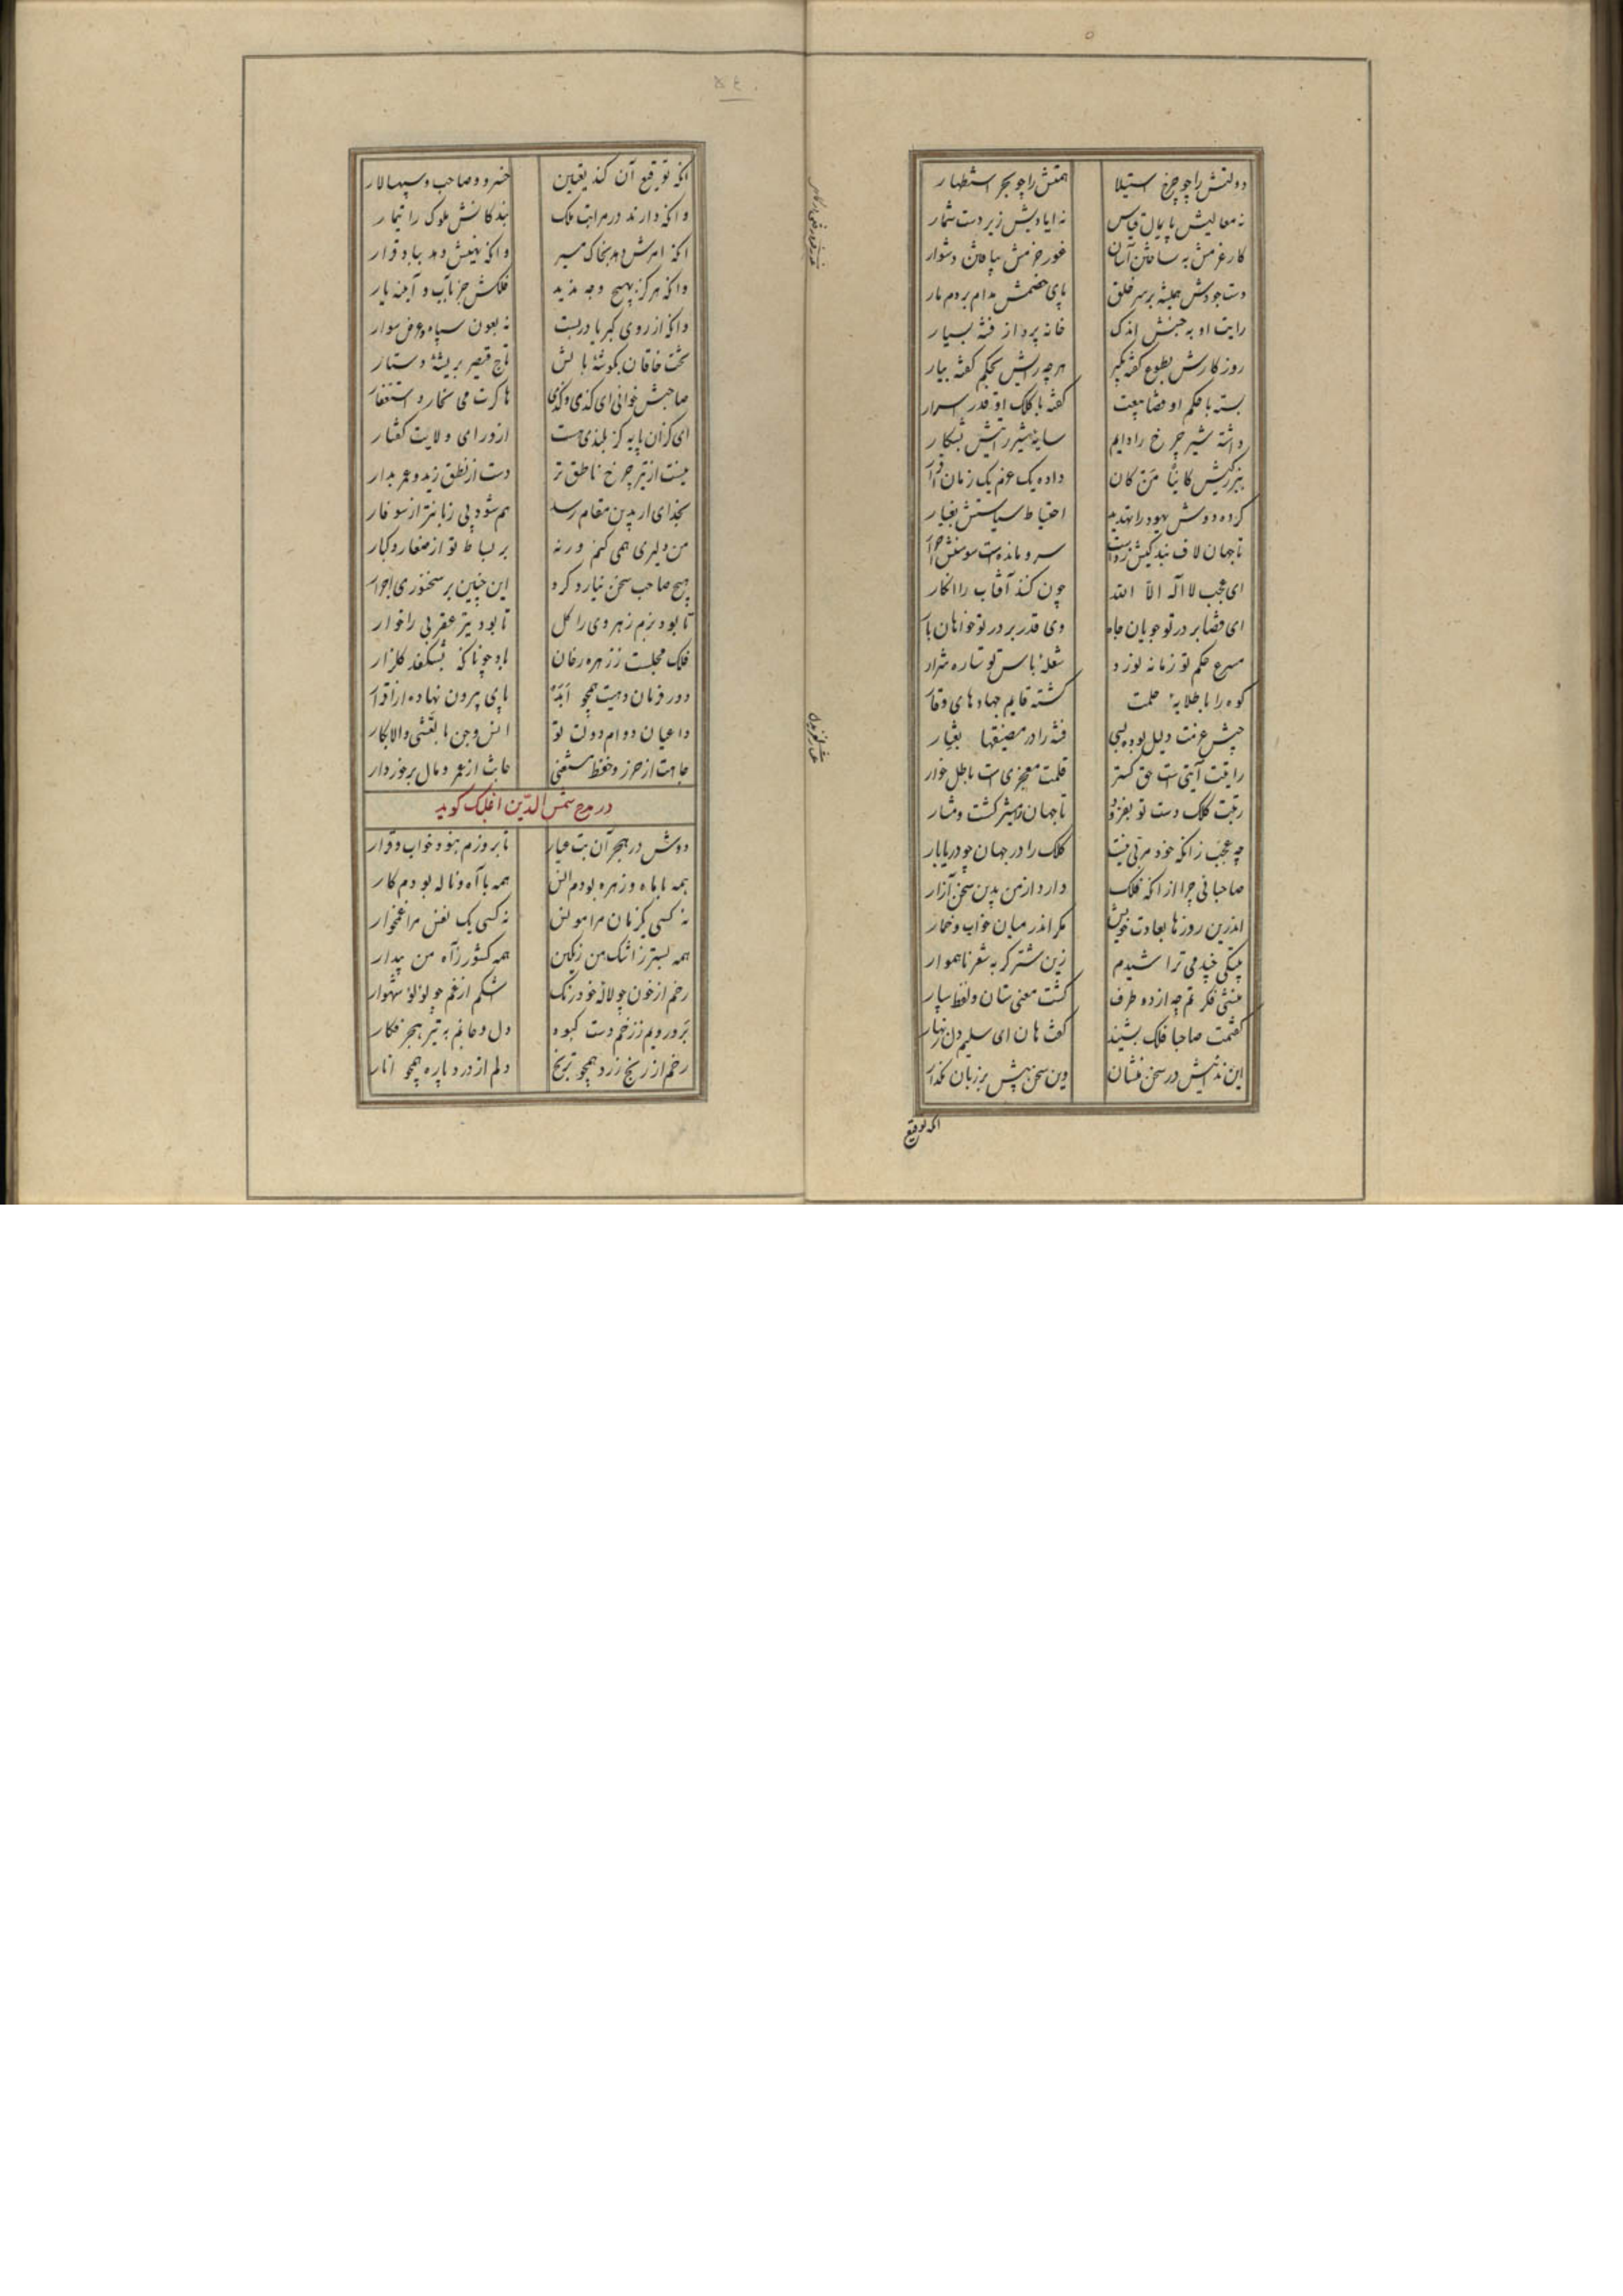 دولتش را چو چرخ استیلا همتش را چو بحر استظهار
نه معالیش پایمال قیاس نه ایادیش زیر دست شمار
کار عزمش به ساختن آسان غور حزمش بیافتن دشوار
دست جودش همیشه بر سر خلق پای خصمش مدام بر دم مار
رایت او به جنبش اندک خانه پرداز فتنه بسیار
روزکارش بطوع کفته بگیر هرچه رایش بحکم کفته بیار
بسته با حکم او قضا بیعت کفته با کلک او قدر اسرار
داشته شیر چرخ را دایم سایه شیر رایتش بشکار
بزرکیش کاینا من کان داده یک عزم یک زبان اقرار
کرده دوش یهود را تهدید احتیاط سیاستش بغیار
تا جهان لاف بندکیش زدست سرو مانده‌ست و سوسنش احرار
ای عجب لا اله الا الله چون کند آفتاب را انکار
ای قضا بر در تو جویان جاه وی قدر بر در تو خواهان بار
مسرع حکم تو زمانه نورد شعله باس تو ستاره شرار
کوه را با طلایه حلمت کشته قایم جهادهای وقار
جیش عزمت دلیل بوده بسی فتنه را در مضیقها بغبار
رایتت آیتی است حق کستر قلمت معجزی است باطل خوار
رتبت کلک دست تو بفزود تا جهان را مشیر کشت و مشار
چه عجب زانکه خود مربی نیست کلک را در جهان چو دریا بار
صاحبا بی چرا از آنکه فلک دارد از من بدین سخن آزار
اندرین روزها بعادت خویش مکر اندر میان خواب و خمار
بیتکی چند می تراشیدم زین شترکربه شعر ناهموار
منشی فکرتم چو از دو طرف کشت معنی ستان و لفظ سپار
کفتمت صاحبا فلک بشنید کفت هان ای سلیم دل زنهار
این ندانیش در سخن منشان وین سخن بیش بر زبان مکذار
انکه توقیع
انکه توقیع آن کند یقین خسرو و صاحب و سپهسالار
وانکه دارند در مراتب ملک بندکانش ملوک را تیمار
انکه امرش دهد بخاک مسیر وانکه نهیش دهد بباد قرار
وانکه هرکز بهیچ وجه ندید فلکش جز در آب و آینه یار
وانکه از روی کبریا دربست نه بعون سپاه و عرض سوار
تخت خاقان بکوشه بالش تاج قیصر بریشه دستار
صاحبش خوانی ای کذی و کذی هاکرت می نخارد استغفار
ای کزان پایه کز بلندی هست از ورای ولایت کفتار
نیست از تیر چرخ ناطق تر دست از نطق زید و عمرو بدار
بخدای ار بدین مقام رسد هم شود بی زبانتر از سوفار
من دلیری همی کنم ورنه بر بساط تو از صغار و کبار
هیچ صاحب سخن نیارد کرد این چنین بر سخنوری اجرار
تا بود بزم زهره وی را کل تا بود تیر عقربی را خوار
فلک مجلست ز زهره رخان باد چونانکه بشکفد کلزار
دور فرمان دهیت همچو ابد پای بیرون نهاده از اقرار
داعیان دوام دولت تو انس و جن بالعشی والابکار
جاهت از حرز و حفظ مستغنی جانت از عمر و مال برخوردار
در مدح شمس الدین اغلبک کوید
دوش در هجر آن بت عیار تا بروزم نبود خواب و قرار
همه با ماه و زهره بودم انس همه با آه و ناله بودم کار
نه کسی یک زمان مرا مونس نه کسی یک نفس مرا غمخوار
همه بستر ز اشک من رنکین همه کشور ز آه من بیدار
رخم از خون چو لاله خودرنک اشکم از غم چو لؤلؤ شهوار
بر و رویم ز زخم دست کبود دل و جانم به تیر هجر فکار
رخم از رنج زرد همچو ترنج دلم از درد پاره همچو انار